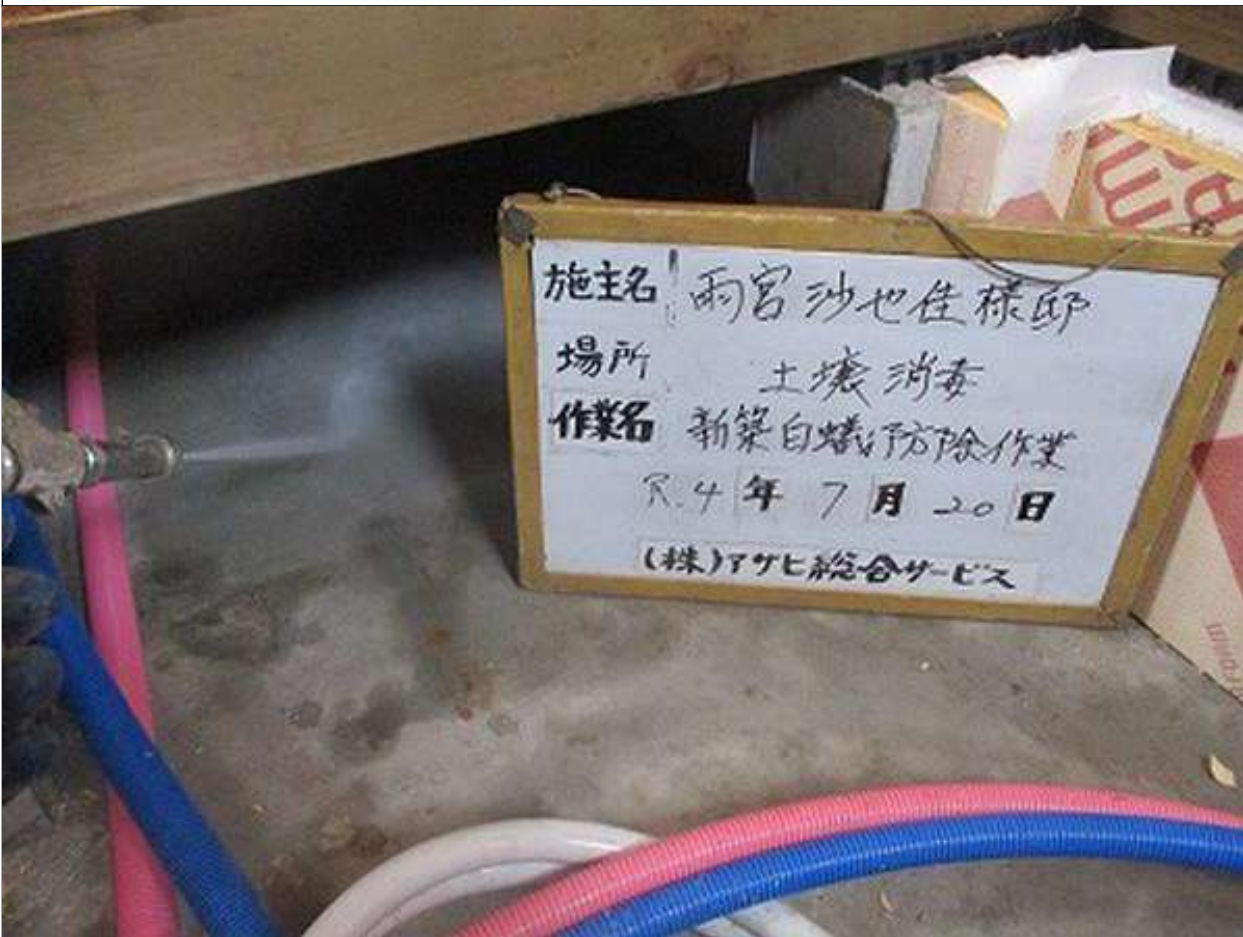 施主名 雨宮沙也佳様邸
場所 土壌消毒
作業名 新築白蟻防除作業
R.4年7月20日
(株)アサヒ総合サービス